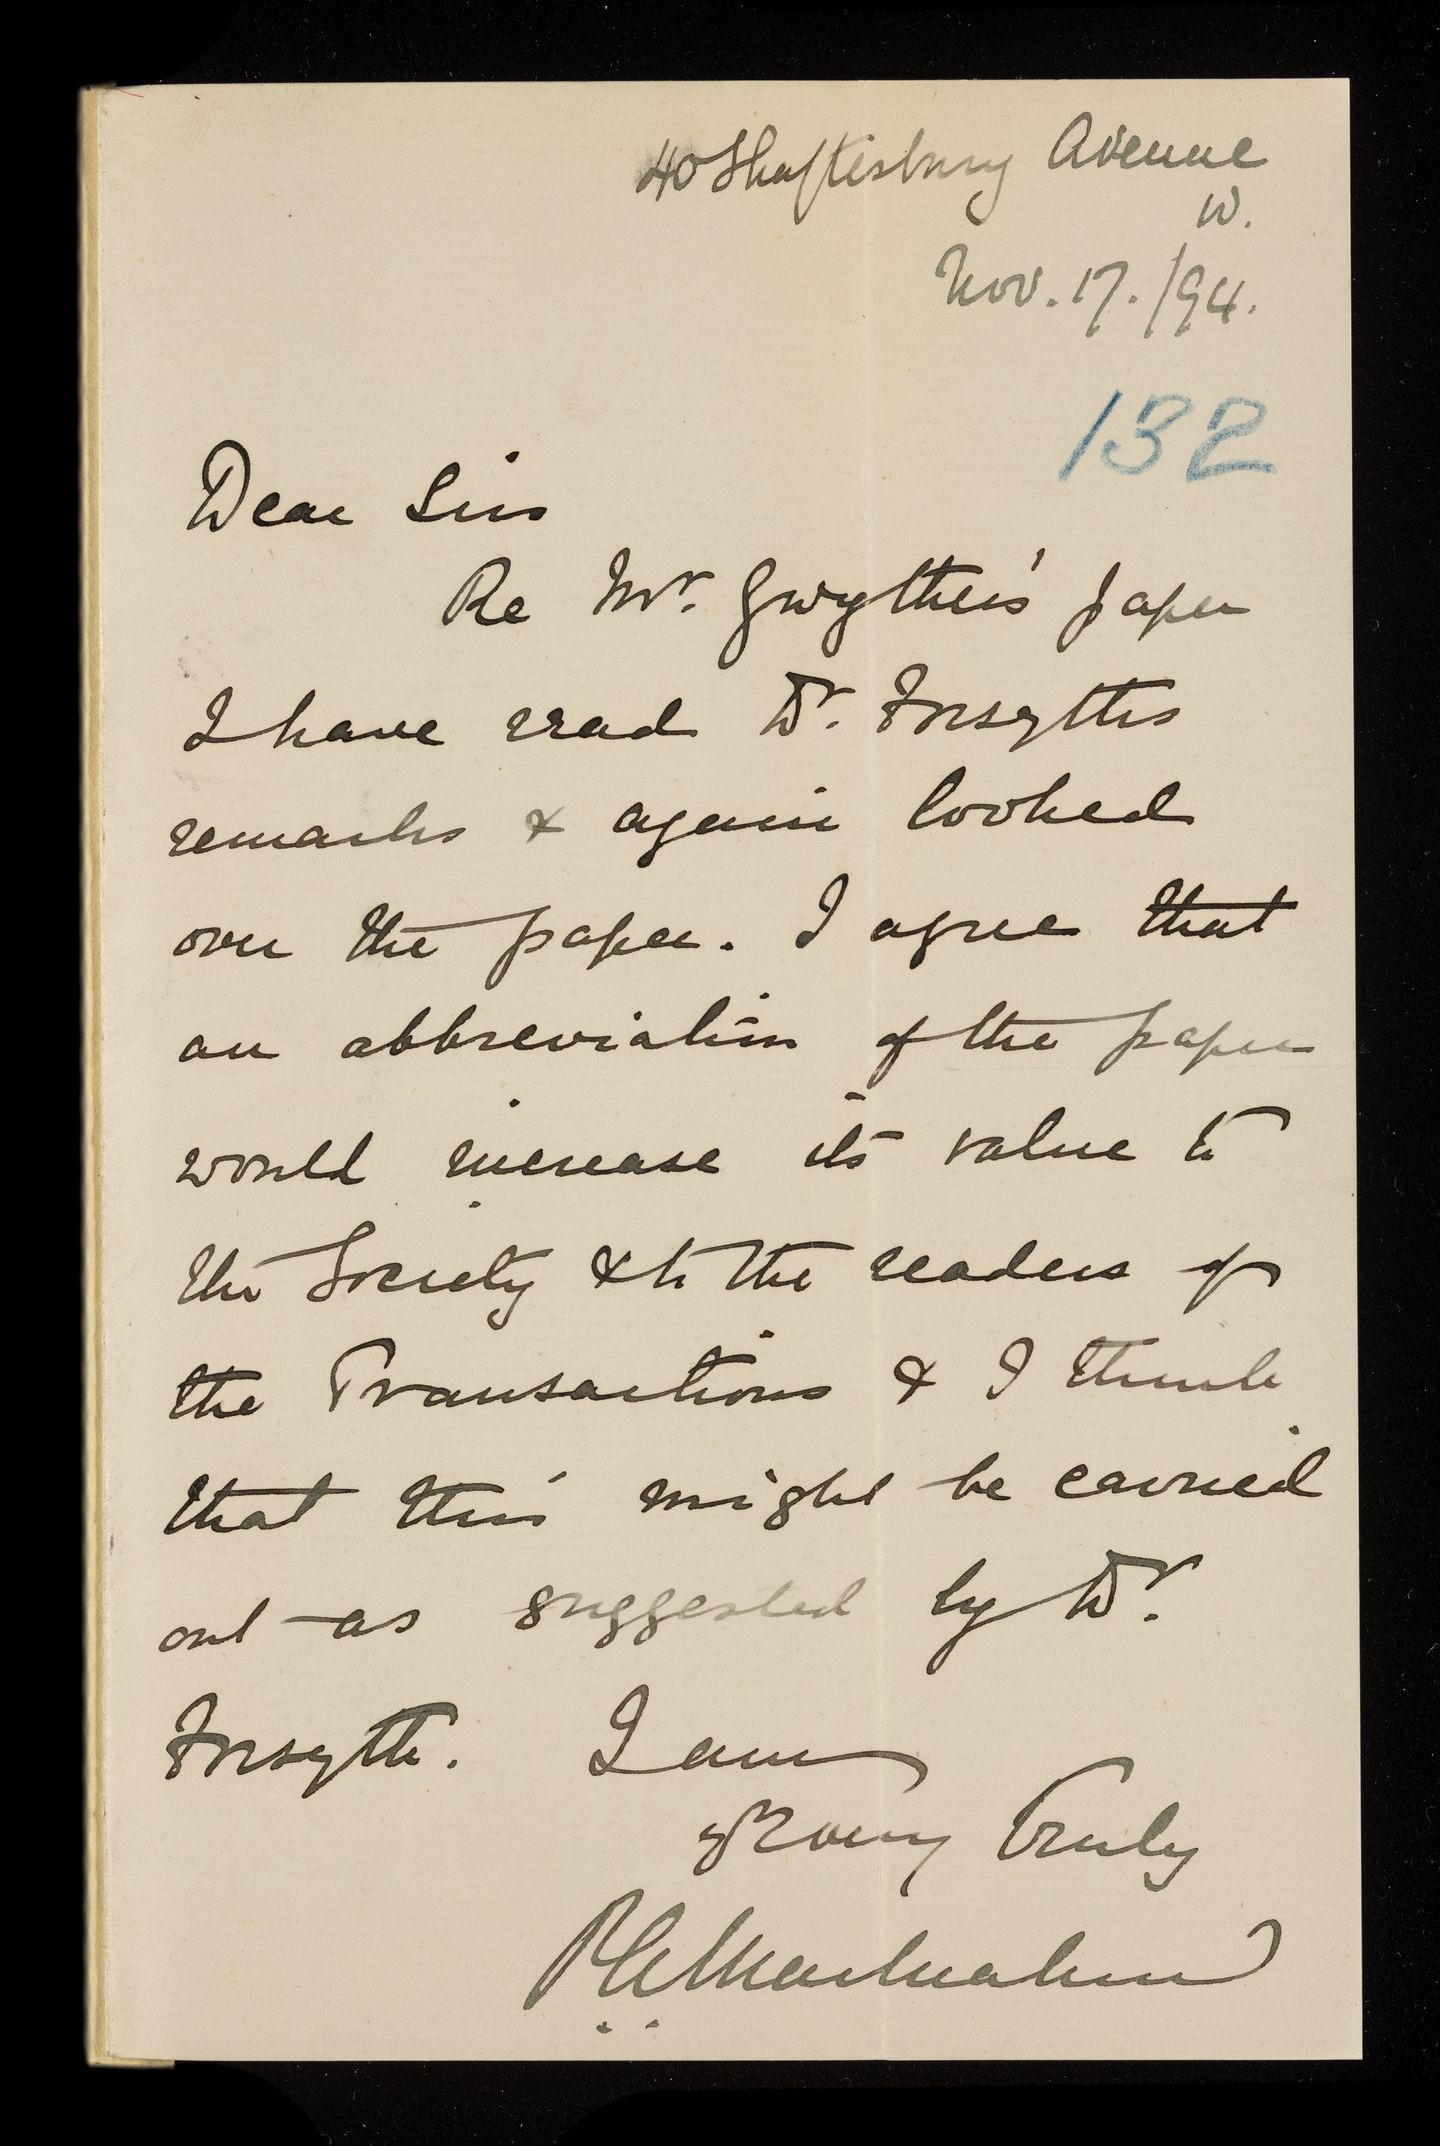 40 Shaftesbury Avenue
W.
Nov. 17. /94.
132
Dear Sirs
Re Mr. Gwyther's paper
I have read Dr. Forsyths
remarks & again looked
over the paper. I agree that
an abbreviation of the paper
would increase its value to
the Society & to the readers of
the Transactions & I think
that this might be carried
out as suggested by Dr.
Forsyth. I am
Very Truly
P A MacMahon